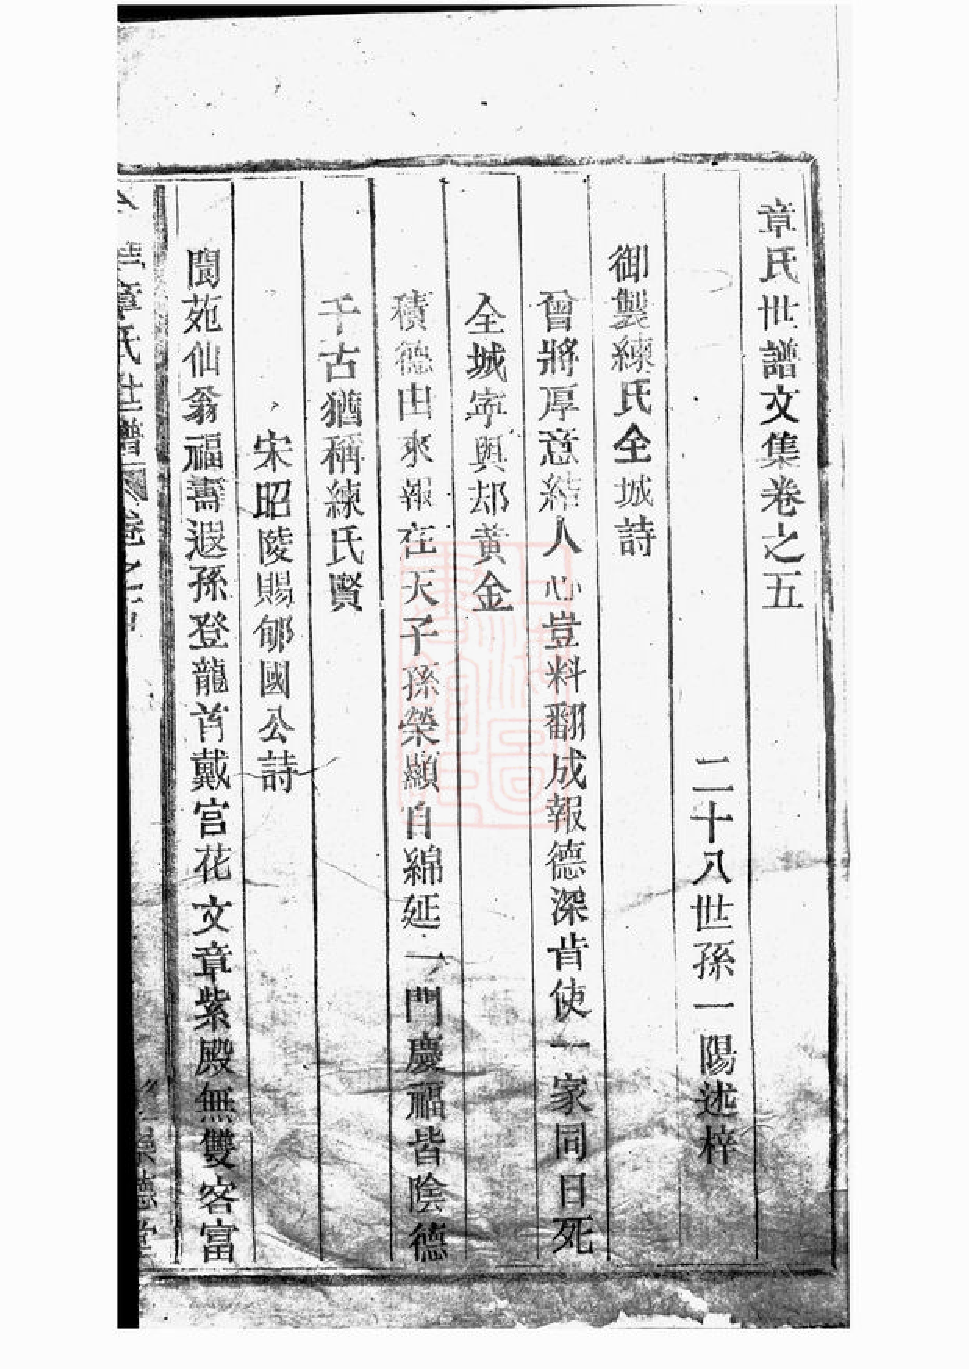 章氏世譜文集卷之五
二十八世孫一陽述梓
御製練氏全城詩
曾將厚意結人心豈料翻成報德深肯使一家同日死
全城寧與却黄金
積德由來報在天子孫榮顯自綿延一門慶福皆陰德
千古猶稱練氏賢
宋昭陵賜郇國公詩
閬苑仙翁福壽遐孫登龍首戴宫花文章紫殿無雙客富
章氏世譜 卷之五 崇德堂